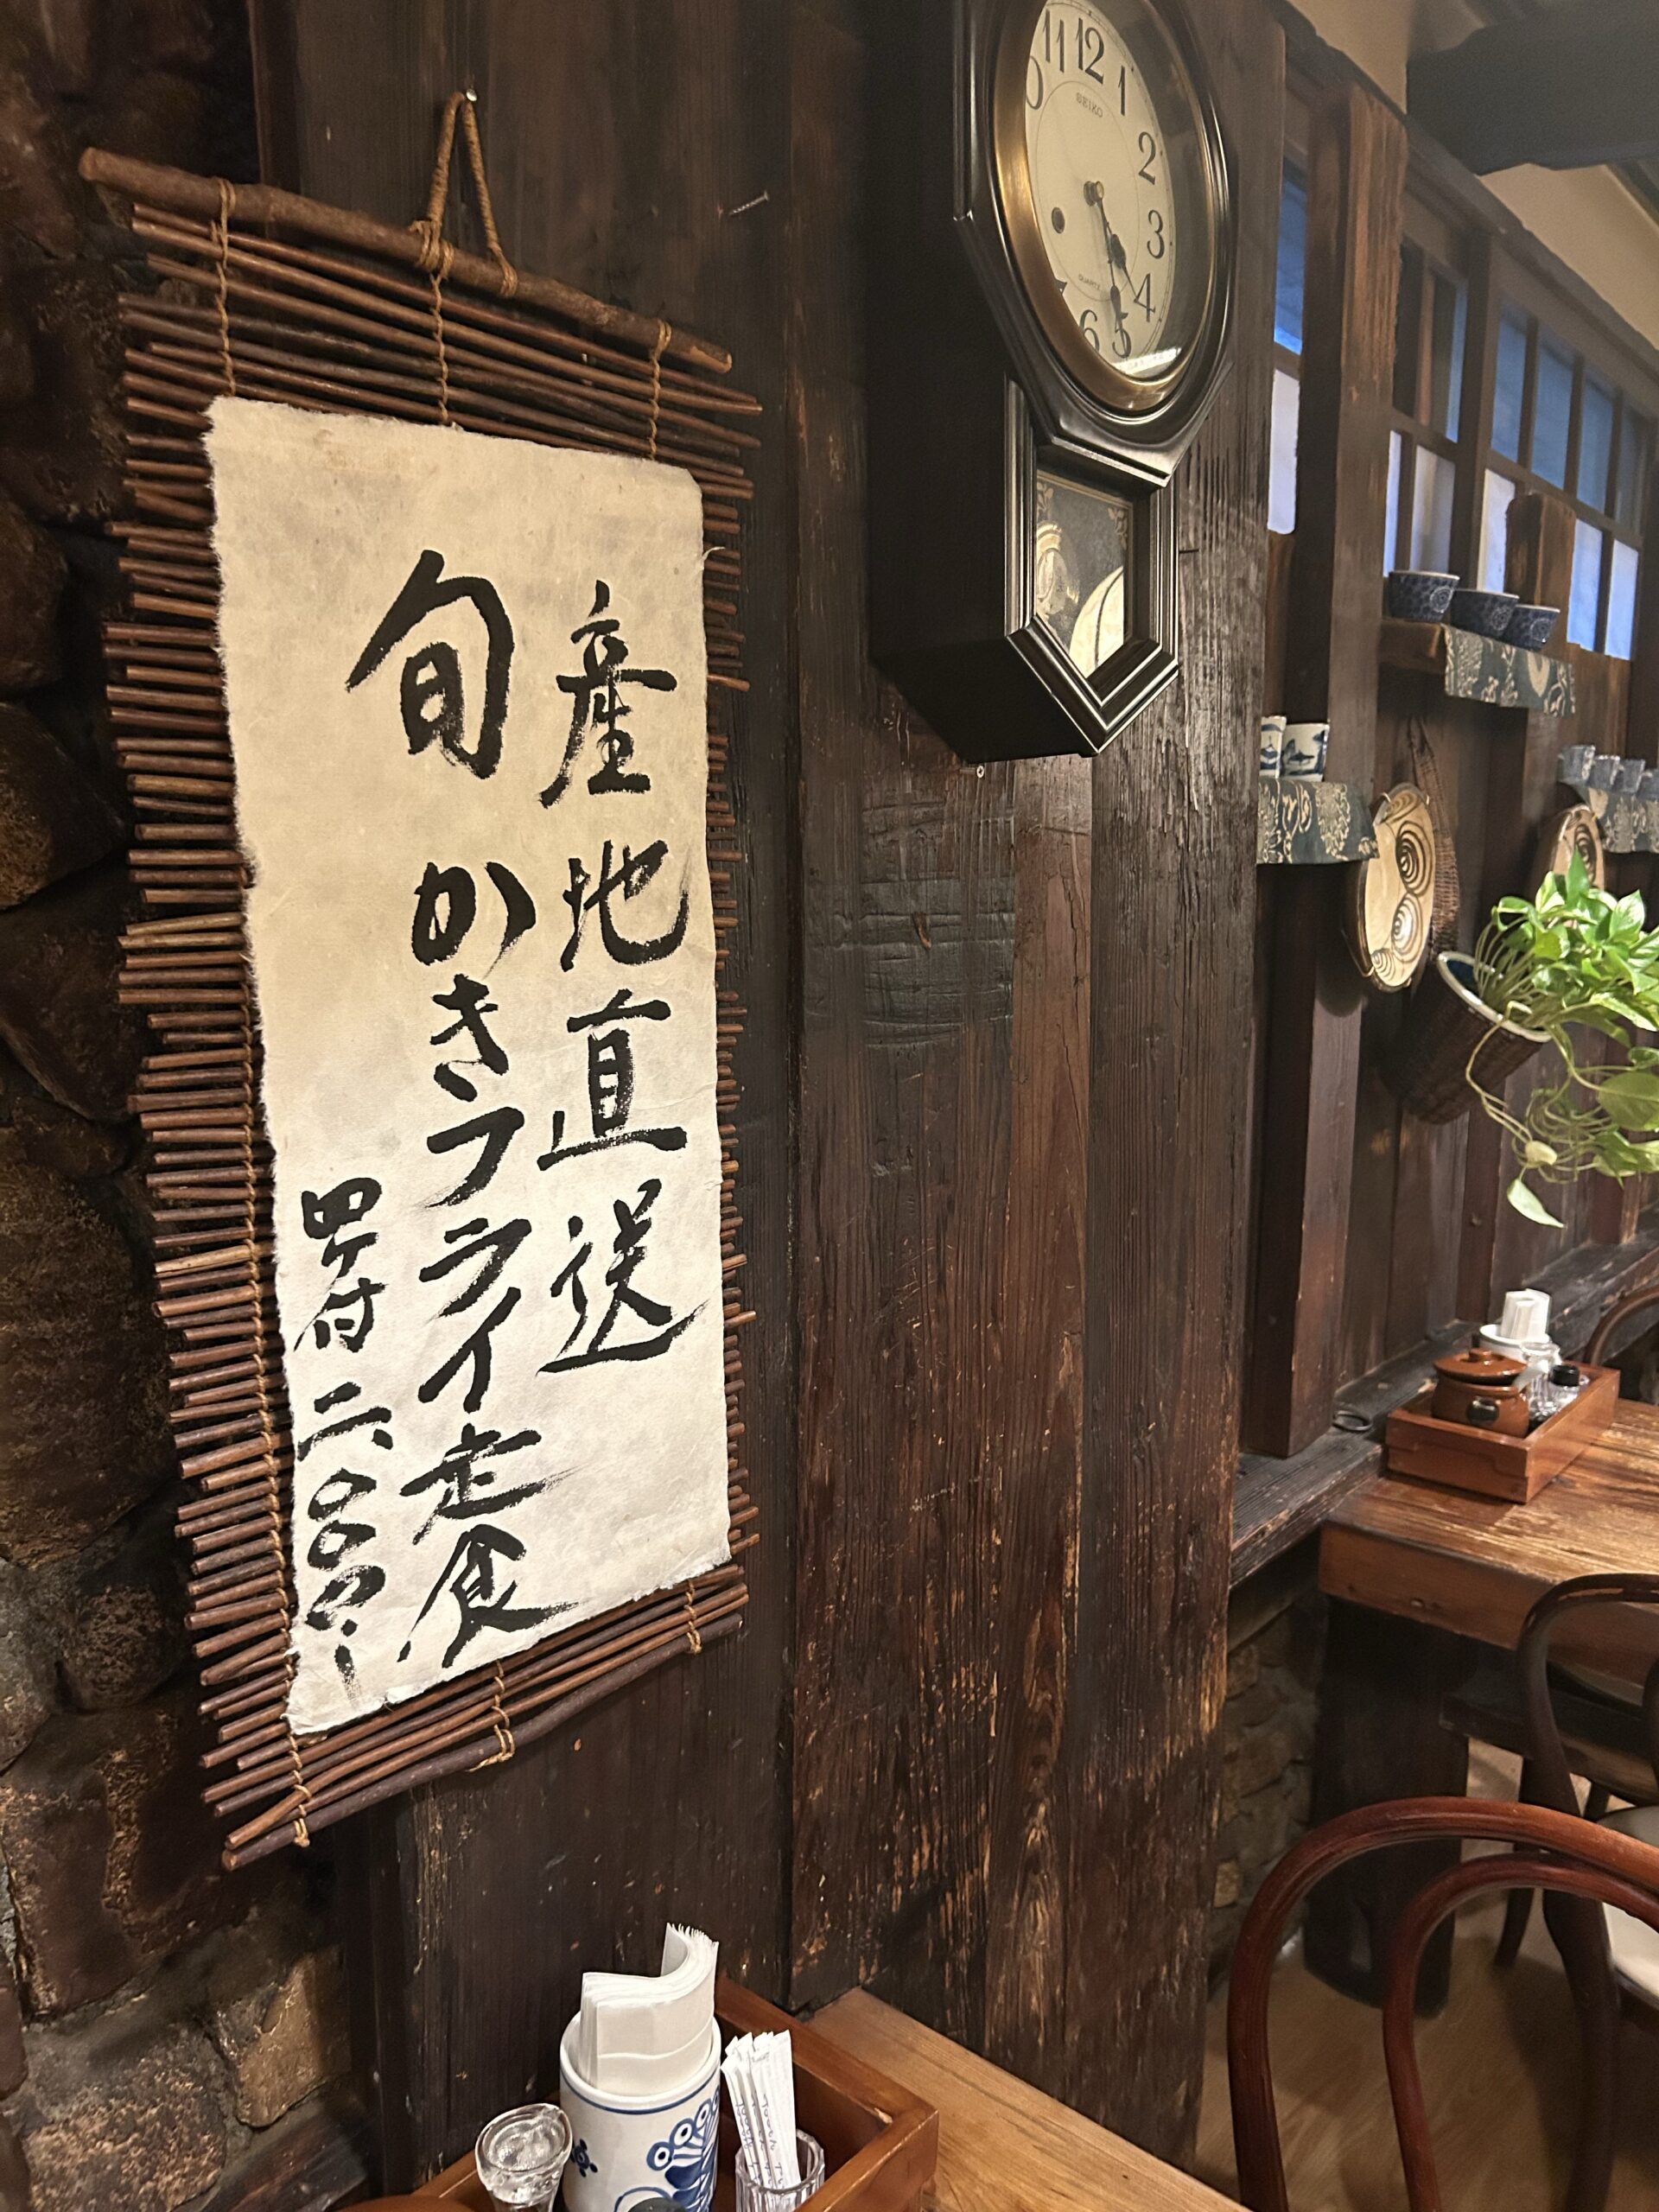 産地直送
旬 かきフライ定食
四ケ付 二、〇〇〇
11 12 1
2
3
4
5
6
SEIKO
QUARTZ